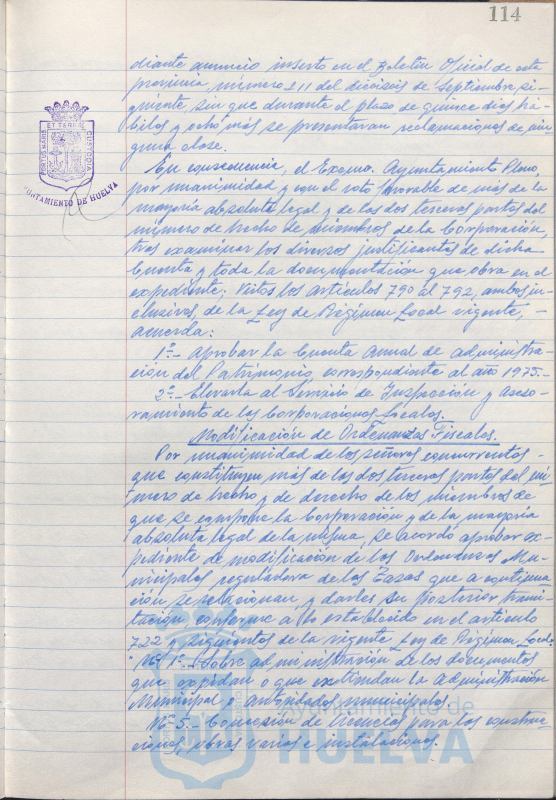 114
diante anuncio inserto en el Boletín Oficial de esta
provincia, número 211 del dieciseis de Septiembre si-
guiente, sin que durante el plazo de quince días há-
biles y ocho más se presentaran reclamaciones de nin
guna clase.
En consecuencia, el Excmo. Ayuntamiento Pleno,
por unanimidad y con el voto favorable de más de la
mayoría absoluta legal y de las dos terceras partes del
número de hecho de miembros de la Corporación,
tras examinar los diversos justificantes de dicha
Cuenta y toda la documentación que obra en el
expediente; Vistos los artículos 790 al 792, ambos in-
clusives, de la Ley de Régimen Local vigente, -
acuerda:
1º.- Aprobar la Cuenta Anual de administra
ción del Patrimonio correspondiente al año 1975.-
2º.- Elevarla al Servicio de Inspección y aseso-
ramiento de las Corporaciones Locales.
Modificación de Ordenanzas Fiscales.
Por unanimidad de los señores concurrentes -
que constituyen más de las dos terceras partes del nú
mero de hecho y de derecho de los miembros de
que se compone la Corporación y de la mayoría
absoluta legal de la misma, se acordó aprobar ex-
pediente de modificación de las Ordenanzas Mu-
nicipales reguladora de las Tasas que a continua
ción se relacionan, y darles su posterior trami-
tación conforme a lo establecido en el artículo
722 y siguientes de la vigente Ley de Régimen Local:
Nº 1º.- Sobre administración de los documentos
que expidan o que extiendan la Administración
Municipal o Autoridades municipales.
Nº 5.- Concesión de licencias para las construc-
ciones, obras varias e instalaciones.
PORTUS MARIS ET TERRAE CUSTODIA
AYUNTAMIENTO DE HUELVA
Ayuntamiento de
HUELVA